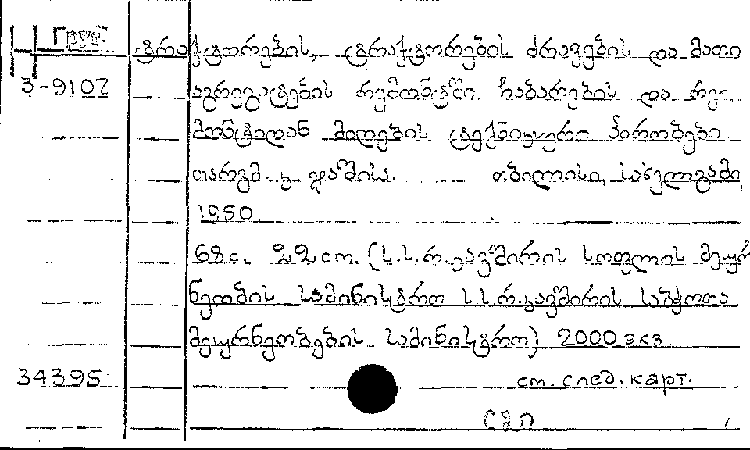 ტრაქტორების, ტრაქტორების ძრავების და მათი
3-9107 აგრეგატების რემონტში ჩაბარების და რე-
მონტიდან მიღების ტექნიკური პირობები
თარგმ. თბილისი, სახელგამი,
1950
68 გ. 22 სთ. (ს.ს.რ. კავშირის სოფლის მეურ
ნეობის სამინისტრო ს.ს.რ. კავშირის საბჭოთა
მეურნეობების სამინისტრო) 2000 ეკз
34395 см. след. карт.